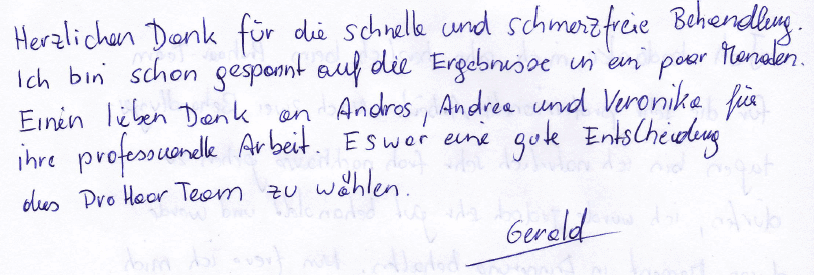 Herzlichen Dank für die schnelle und schmerzfreie Behandlung.
Ich bin schon gespannt auf die Ergebnisse in ein paar Monaten.
Einen lieben Dank an Andros, Andrea und Veronika für
ihre professionelle Arbeit. Es war eine gute Entscheidung
das Pro Haar Team zu wählen.
Gerald